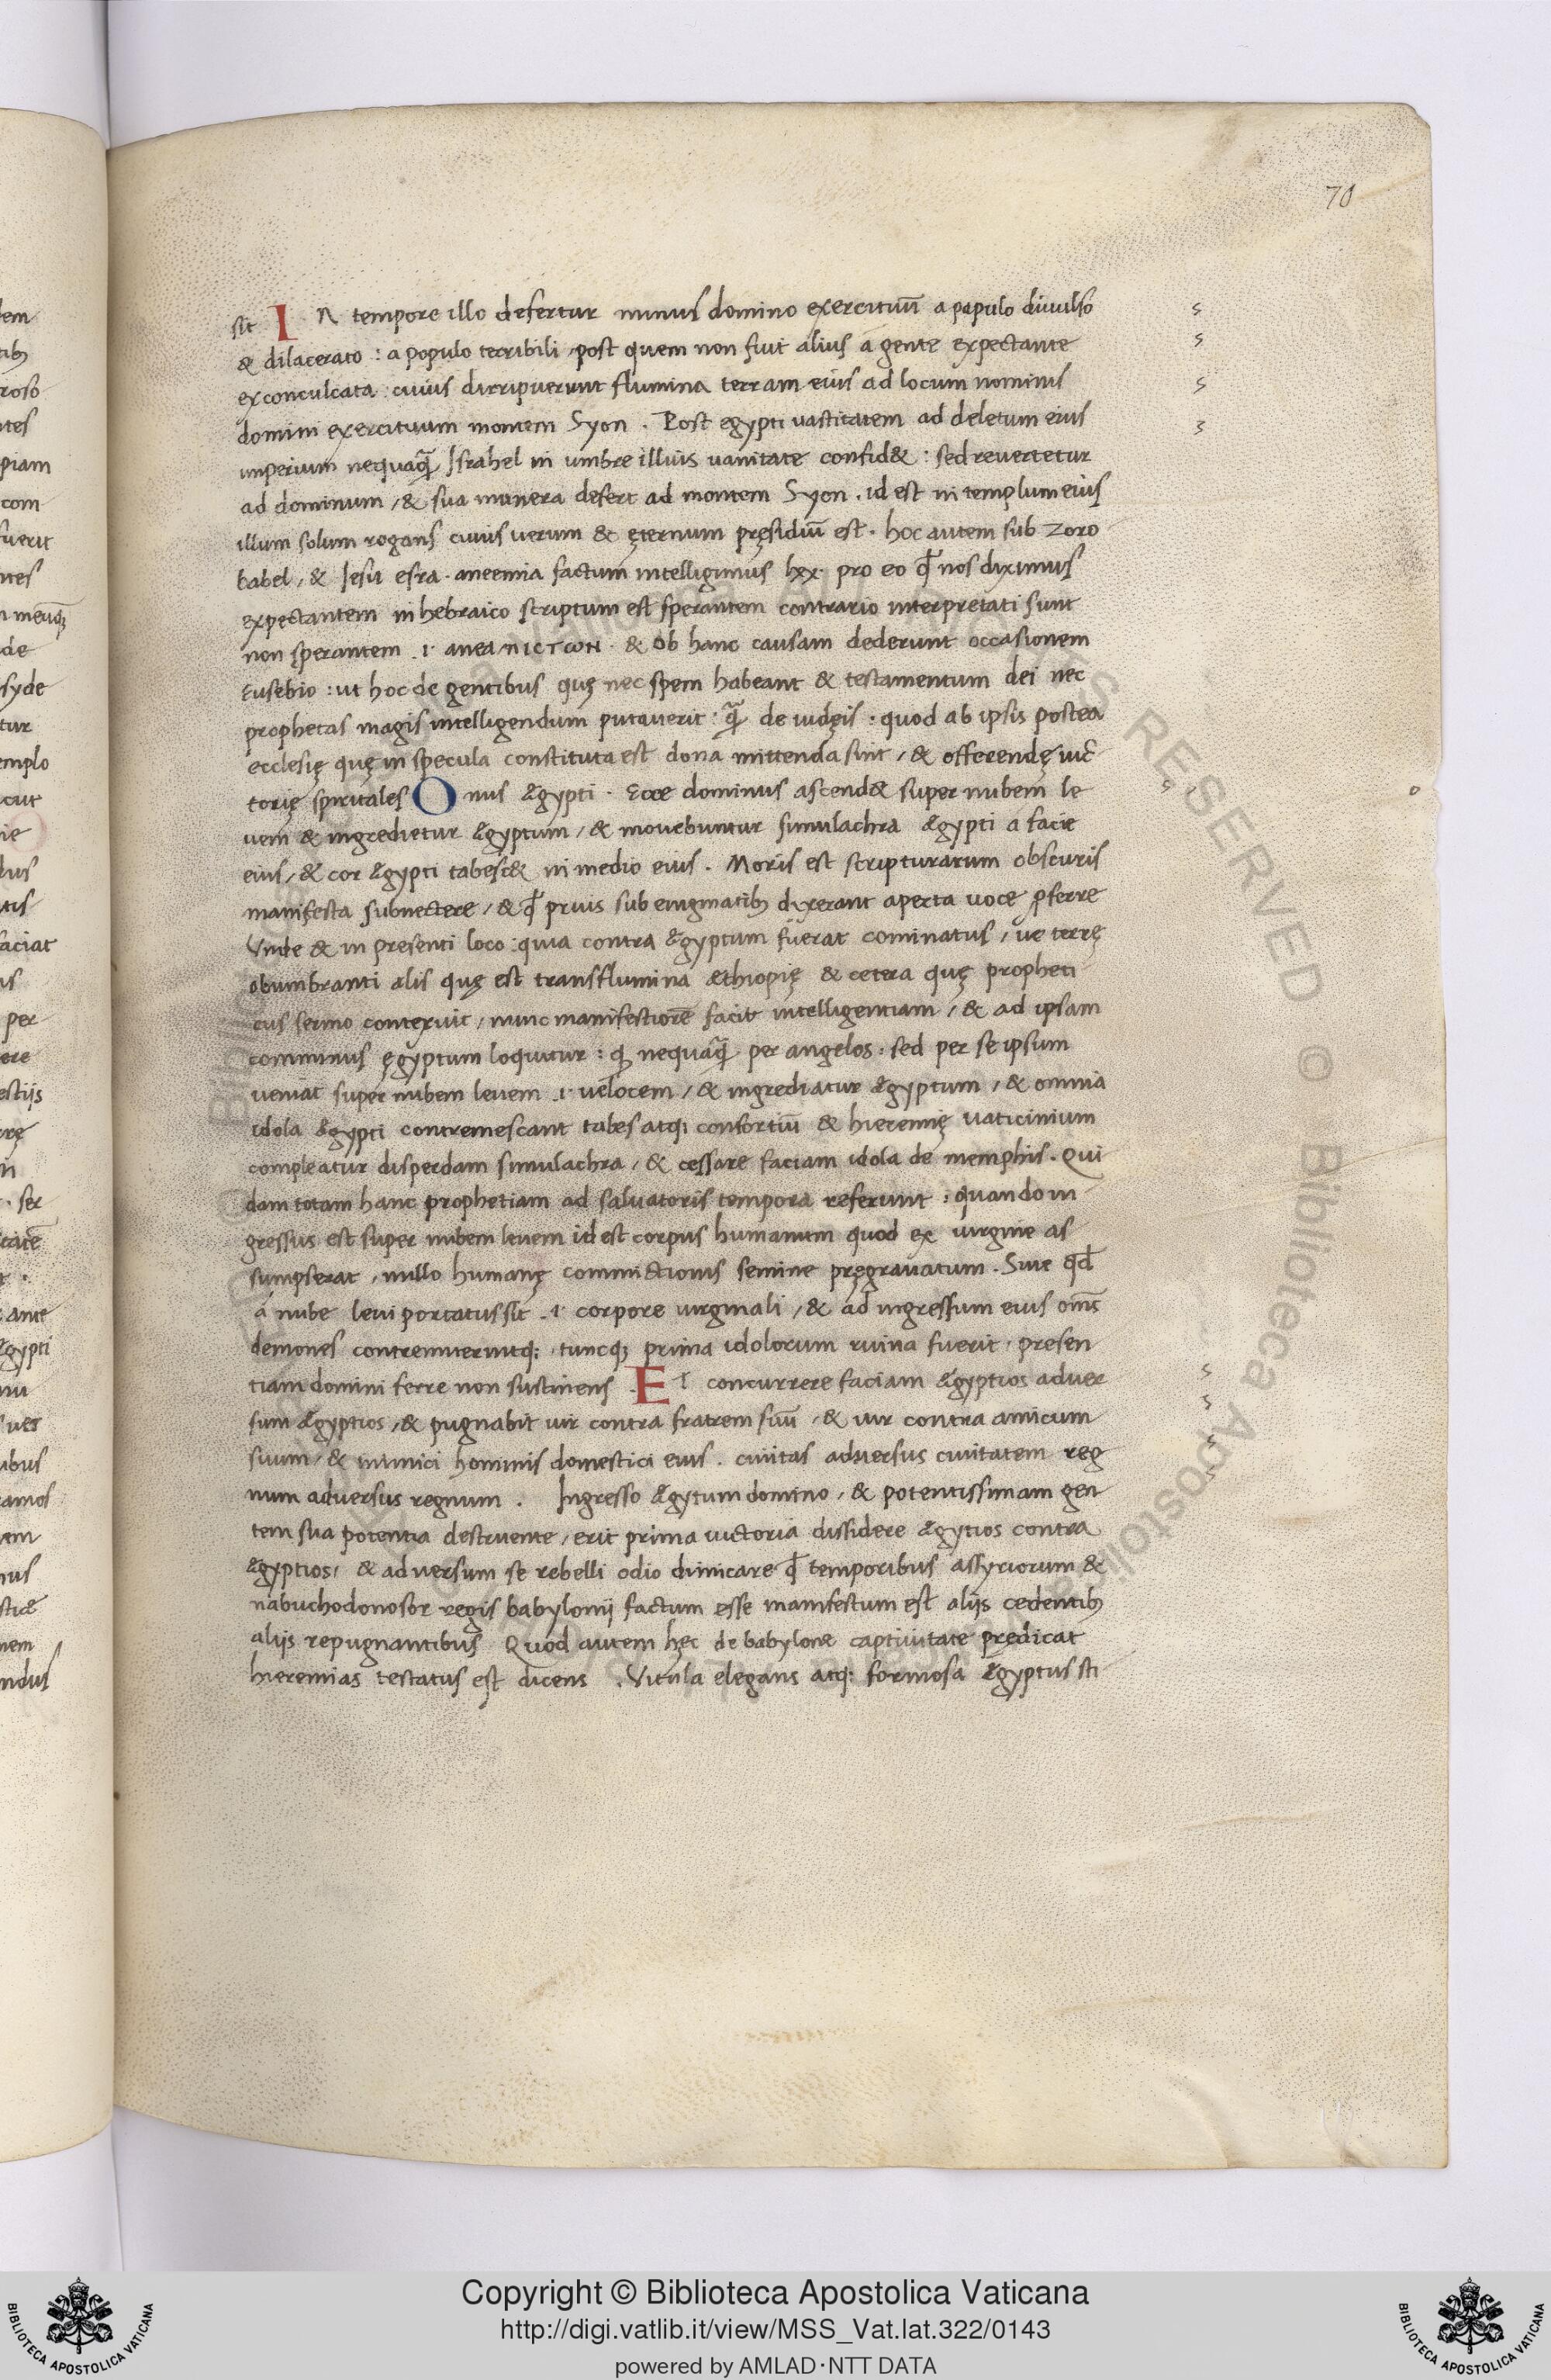 70
sit IN tempore illo defertur munus domino exercituū a populo divulso
& dilacerato : a populo terribili / post quem non fuit alius a gente expectante
exconculcata : cuius dirripuerunt flumina terram eius ad locum nominis
domini exercituum montem Syon . Post egypti vastitatem ad deletum eius
imperium nequaq̃ Israhel in umbre illius vanitate confid& : sed revertetur
ad dominum / & sua munera defert ad montem Syon . id est in templum eius
illum solum rogans cuius verum & ęternum pręsidiū est . hoc autem sub Zoro
babel / & Iesu esra . aneemia factum intelligimus lxx . pro eo ꝙ nos diximus
expectantem in hebraico scriptum est sperantem contrario interpretati sunt
non sperantem .i. anea ΠICTωN . & ob hanc causam dederunt occasionem
Eusebio : ut hoc de gentibus quę nec spem habeant & testamentum dei nec
prophetas magis intelligendum putaverit : q̃ de iudęis : quod ab ipsis postea
ecclesię quę in specula constituta est dona mittenda sint / & offerendę vic
torię spiritales Onus Ægypti . Ecce dominus ascend& super nubem le
vem & ingredietur Ægyptum / & movebuntur simulachra Ægypti a facie
eius / & cor Ægypti tabesc& in medio eius . Moris est scripturarum obscuris
manifesta subnectere / & ꝙ prius sub enigmatib; dixerant aperta voce ꝓferre
Unde & in presenti loco : quia contra Ægyptum fuerat cominatus / vę terrę
obumbranti alis quę est trans flumina æthiopię & cetera quę propheti
cus sermo contexuit / nunc manifestiorē facit intelligentiam / & ad ipsam
comminus ęgyptum loquitur : ꝙ nequaq̃ per angelos : sed per se ipsum
veniat super nubem levem .i. velocem / & ingrediatur Ægyptum / & omnia
idola Ægypti contremescant tabes atq; consortiū & hieremię vaticinium
compleatur disperdam simulachra / & cessare faciam idola de memphis . Qui
dam totam hanc prophetiam ad salvatoris tempora referunt : quando in
gressus est super nubem levem id est corpus humanum quod ex virgine as
sumpserat / nullo humanę commictionis semine pręgravatum . Sive qd
a nube levi portatus sit .i. corpore virginali / & ad ingressum eius om̃s
demones contremuerintq; . tuncq; prima idolorum ruina fuerit / presen
tiam domini ferre non sustinens . ET concurrere faciam Ægyptios adver
sum Ægyptios / & pugnabit vir contra fratrem suū / & vir contra amicum
suum / & inimici hominis domestici eius . civitas adversus civitatem reg
num adversus regnum . Ingresso Ægytum domino / & potentissimam gen
tem sua potentia destruente / erit prima victoria dissidere Ægytios contra
Ægyptios / & adversum se rebelli odio dimicare ꝙ temporibus assyriorum &
nabuchodonosor regis babylonij factum esse manifestum est alijs cedentib;
alijs repugnantibus Quod autem hęc de babylone captivitate predicat
hieremias testatus est dicens . Vitula elegans atq; formosa Ægyptus sti
Copyright © Biblioteca Apostolica Vaticana
http://digi.vatlib.it/view/MSS_Vat.lat.322/0143
powered by AMLAD·NTT DATA
BIBLIOTECA APOSTOLICA VATICANA
BIBLIOTECA APOSTOLICA VATICANA